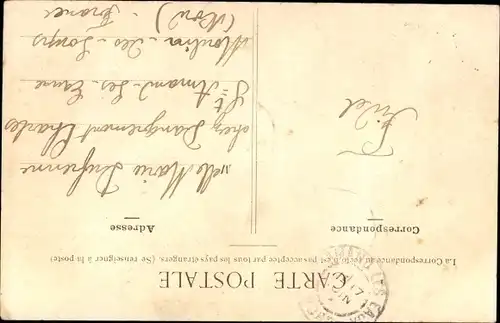 CARTE POSTALE
La Correspondance au recto n'est pas acceptée par tous les pays étrangers. (Se renseigner à la poste)
Correspondance
Adresse
Fidel
Melle Marie Dufrenne
chez Dangrement Charles
St Amand-les-Eaux
Moulin-des-Loups
(Nord)
France